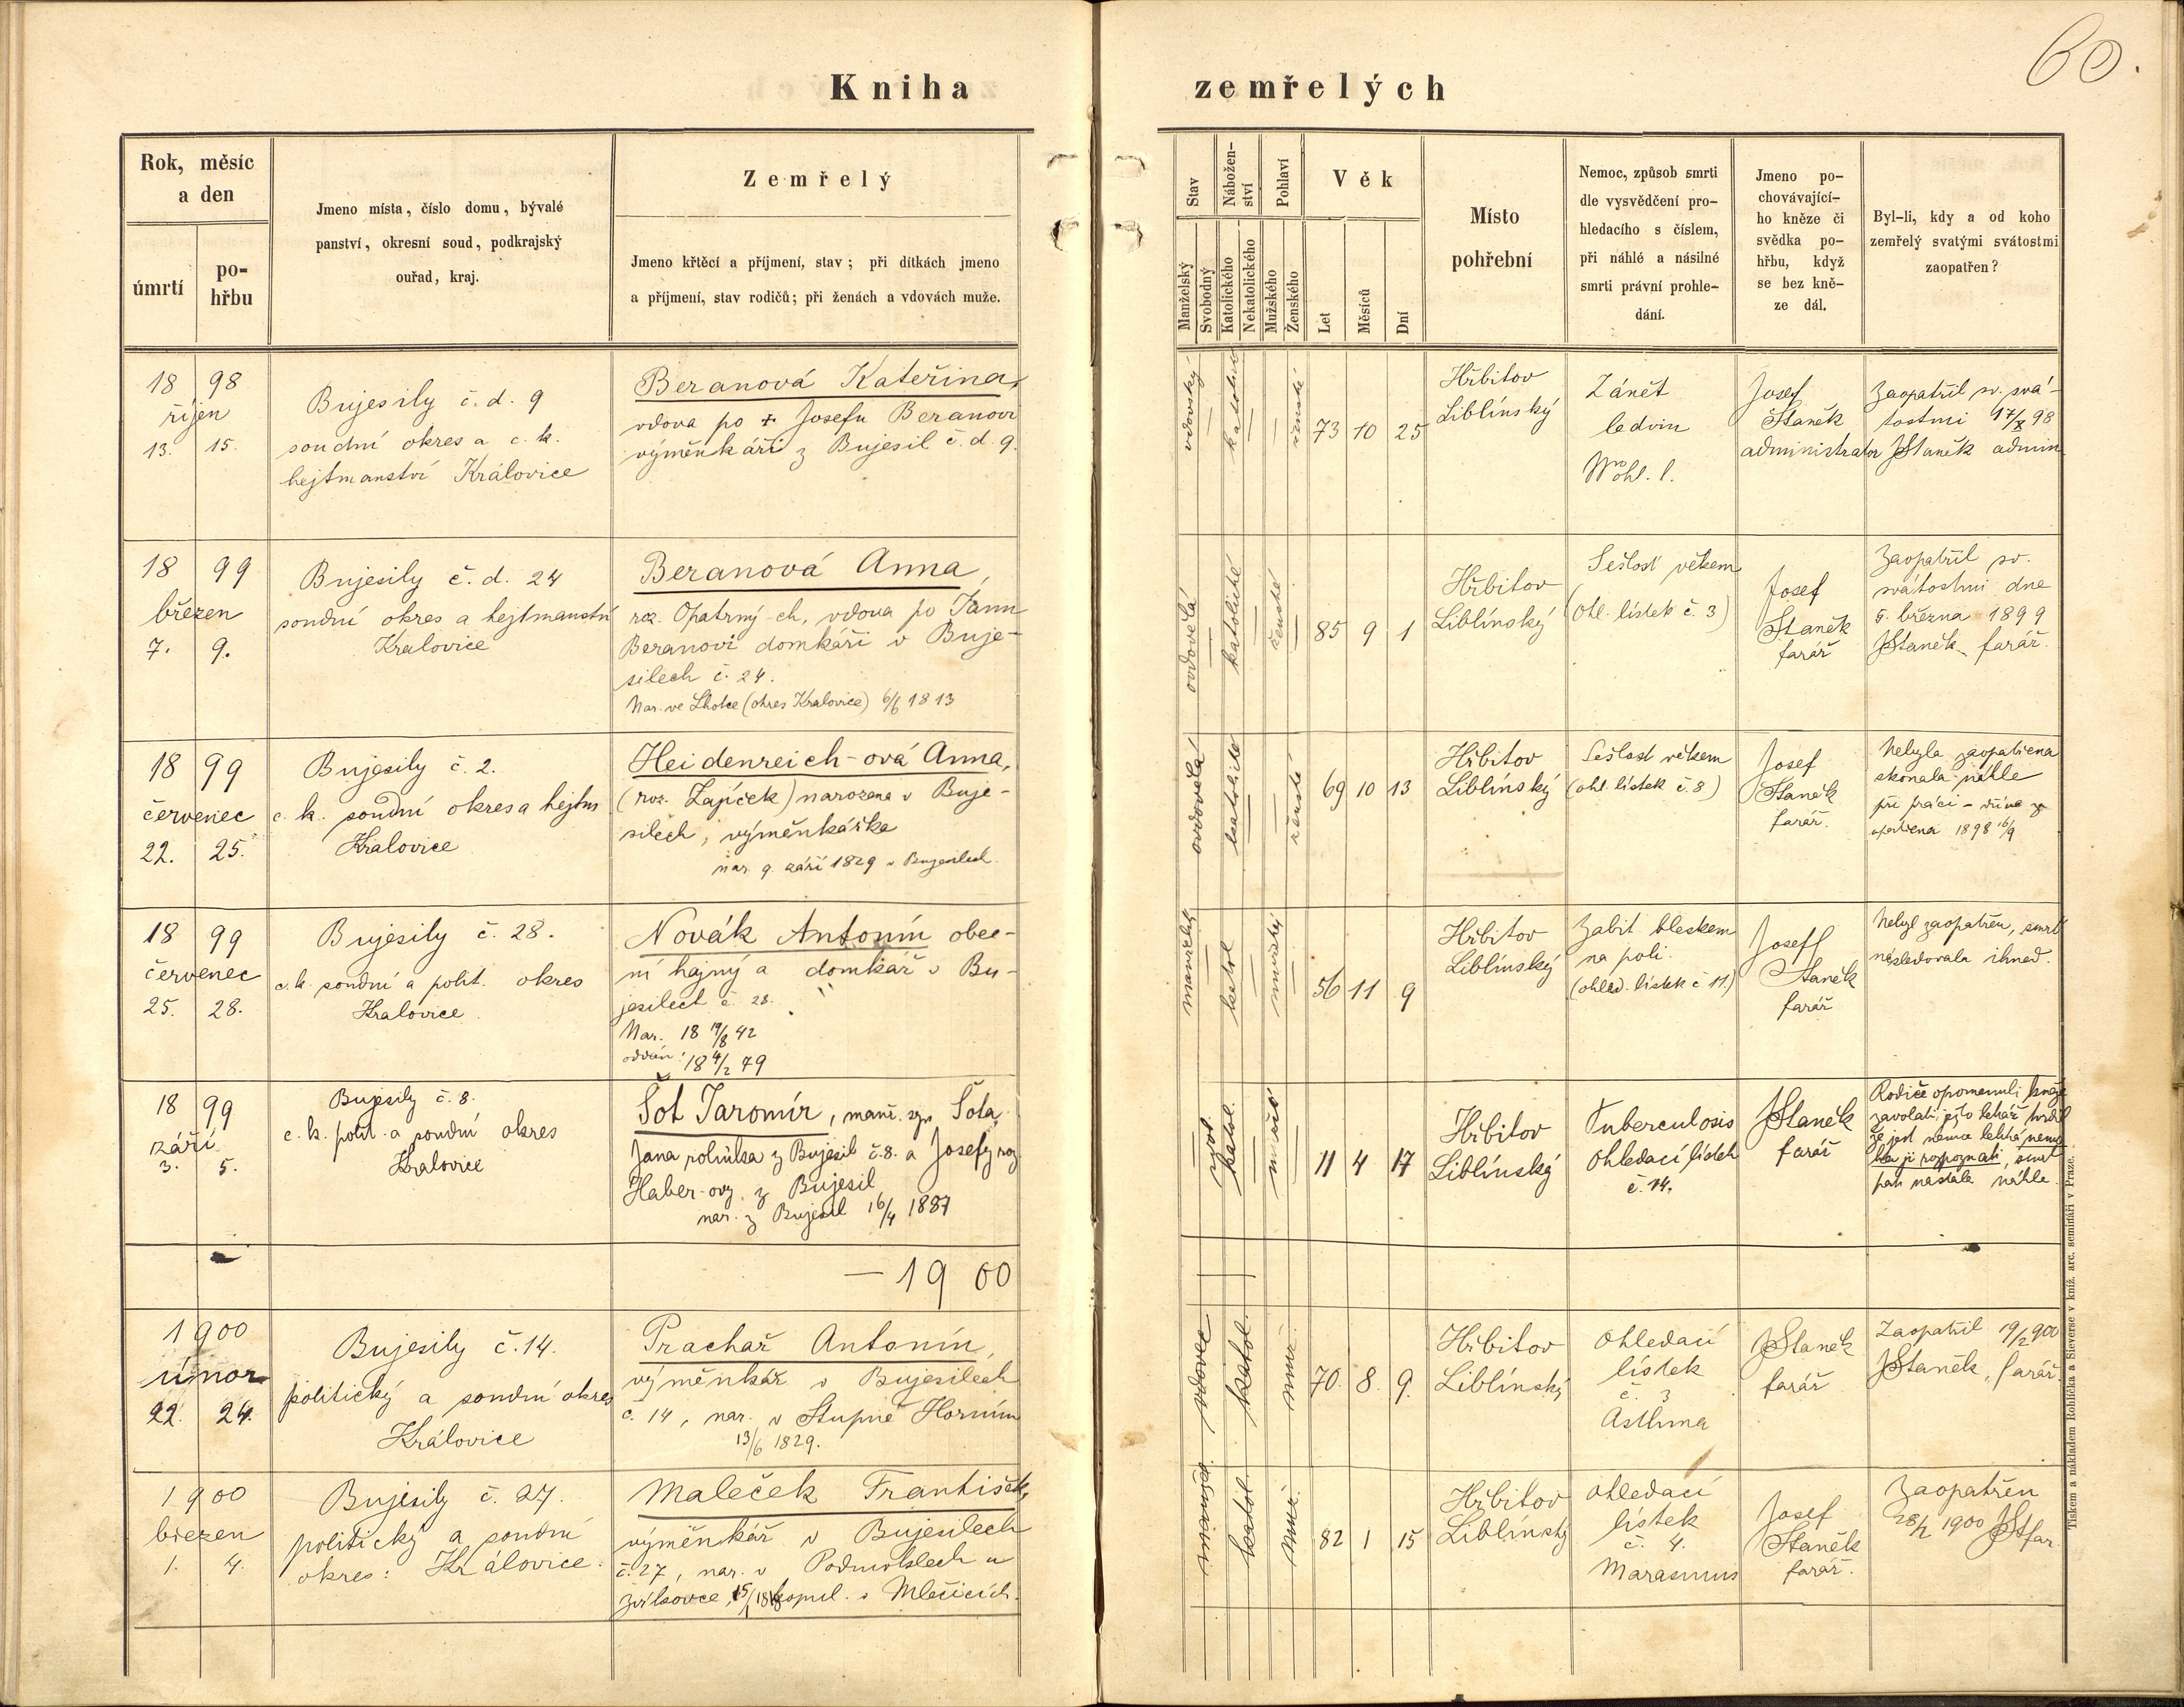 60.
Kniha zemřelých
Rok, měsíc
a den
úmrtí
po-
hřbu
Jmeno místa, číslo domu, bývalé
panství, okresní soud, podkrajský
ouřad, kraj.
Zemřelý
Jmeno křtěcí a příjmení, stav; při dítkách jmeno
a příjmení, stav rodičů; při ženách a vdovách muže.
Stav
Manželský
Svobodný
Nábožen-
ství
Katolického
Nekatolického
Pohlaví
Mužského
Ženského
Věk
Let
Měsíců
Dní
Místo
pohřební
Nemoc, způsob smrti
dle vysvědčení pro-
hledacího s číslem,
při náhlé a násilné
smrti právní prohle-
dání.
Jmeno po-
chovávající-
ho kněze či
svědka po-
hřbu, když
se bez kně-
ze dál.
Byl-li, kdy a od koho
zemřelý svatými svátostmi
zaopatřen?
18 98
říjen
13. 15.
Bujesily č. d. 9
soudní okres a c. k.
hejtmanství Královice
Beranová Kateřina,
vdova po + Josefu Beranovi
výměnkáři z Bujesil č. d. 9.
vdovský
katolické
ženské
73 10 25
Hřbitov
Liblínský
Zánět
ledvin
Josef
Staněk
administrator
Zaopatřil sv. svá-
tostmi 17/X 98
JStaněk admin
18 99
březen
7. 9.
Bujesily č. d. 24
soudní okres a hejtmanství
Kralovice
Beranová Anna,
roz. Opatrný-ch, vdova po Janu
Beranovi domkáři v Buje-
silech č. 24.
Nar. ve Lhotce (okres Kralovice) 6/6 1813
ovdovělá
katolické
ženské
85 9 1
Hřbitov
Liblínský
Sešlost věkem
(ohl. lístek č. 3)
Josef
Staněk
farář
Zaopatřil sv.
svátostmi dne
5. března 1899
JStaněk farář.
18 99
červenec
22. 25.
Bujesily č. 2.
c. k. soudní okres a hejtm
Kralovice
Heidenreich-ová Anna,
(roz. Zajíček) narozena v Buje-
silech, výměnkářka
nar. 9. září 1829 v Bujesilech
ovdovělá
katolické
ženské
69 10 13
Hřbitov
Liblínský
Sešlost věkem
(ohl. lístek č. 8)
Josef
Staněk
farář.
Nebyla zaopatřena
skonala náhle
při práci - dříve za
opatřena 1898 16/9
18 99
červenec
25. 28.
Bujesily č. 28.
c. k. soudní a polit. okres
Kralovice
Novák Antonín obec-
ní hajný a domkář v Bu-
jesilech č. 28.
Nar. 18 17/8 42
oddán: 18 4/2 79
manželský
katol
mužský
56 11 9
Hřbitov
Liblínský
Zabit bleskem
na poli.
(ohled. lístek č 11.)
Josef
Staněk
farář
Nebyl zaopatřen, smrt
následovala ihned.
18 99
září
3. 5.
Bujesily č. 8.
c. k. polit. a soudní okres
Kralovice
Šot Jaromír, manž. syn Šota
Jana rolníka z Bujesil č. 8. a Josefy roz
Haber-ovy z Bujesil
nar. z Bujesil 16/4 1887
katol.
11 4 17
Hřbitov
Liblínský
Tuberculosis
Ohledací lístek
č. 14.
JStaněk
farář
Rodiče opomenuli kněze
zavolati, ježto lékař tvrdil
že jest nemoc lehká,
ji rozpoznati, smrt
pak nastala náhle.
— 19 00
1900
únor
22. 24.
Bujesily č. 14.
politický a soudní okres
Královice
Prachař Antonín,
výměnkář v Bujesilech
č. 14, nar. v Stupně Horním
13/6 1829.
vdovec
katol.
muž.
70. 8. 9.
Hřbitov
Liblínský
Ohledací
lístek
č. 3
Asthma
JStaněk
farář
Zaopatřil 19/2 900
JStaněk, farář.
1900
březen
1. 4.
Bujesily č. 27.
politický a soudní
okres: Královice.
Maleček František,
výměnkář v Bujesilech
č. 27, nar. v Podmoklech u
Zvíkovce, 15/1 1818 kopul. v Mlečicích.
katol.
muž.
82 1 15
Hřbitov
Liblínský
Ohledací
lístek
č. 4.
Marasmus
Josef
Staněk
farář.
Zaopatřen
28/2 1900 JSt far.
Tiskem a nákladem Rohlíčka a Sieverse v kníž. arc. semináři v Praze.